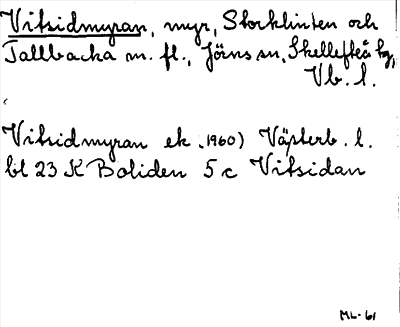 Vitsidmyran, myr, Storklinten och
Tallbacka m. fl., Jörns sn, Skellefteå tg,
Vb. l.
Vitsidmyran ek. 1960) Västerb. l.
bl 23 K Boliden 5 c Vitsidan
ML-61